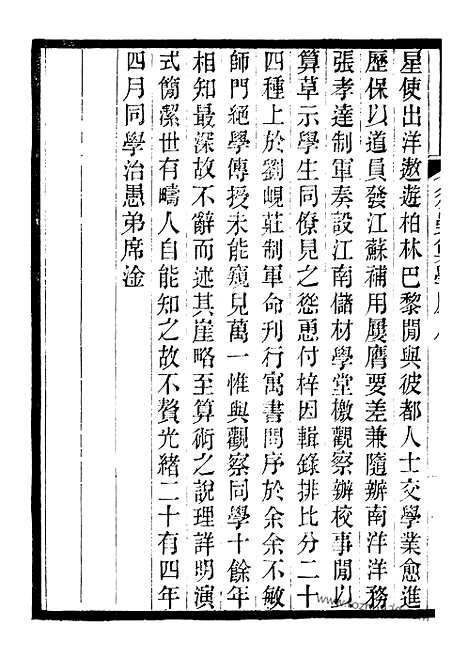 星使出洋遨遊柏林巴黎閒與彼都人士交學業愈進
歷保以道員發江蘇補用屢膺要差兼隨辦南洋洋務
張孝達制軍奏設江南儲材學堂檄觀察辦校事閒以
算草示學生同僚見之慫恿付梓因輯錄排比分二十
四種上於劉峴莊制軍命刊行寓書閩序於余余不敏
師門絕學傳授未能窺見萬一惟與觀察同學十餘年
相知最深故不辭而述其崖略至算術之說理詳明演
式簡潔世有疇人自能知之故不贅光緒二十有四年
四月同學治愚弟席淦